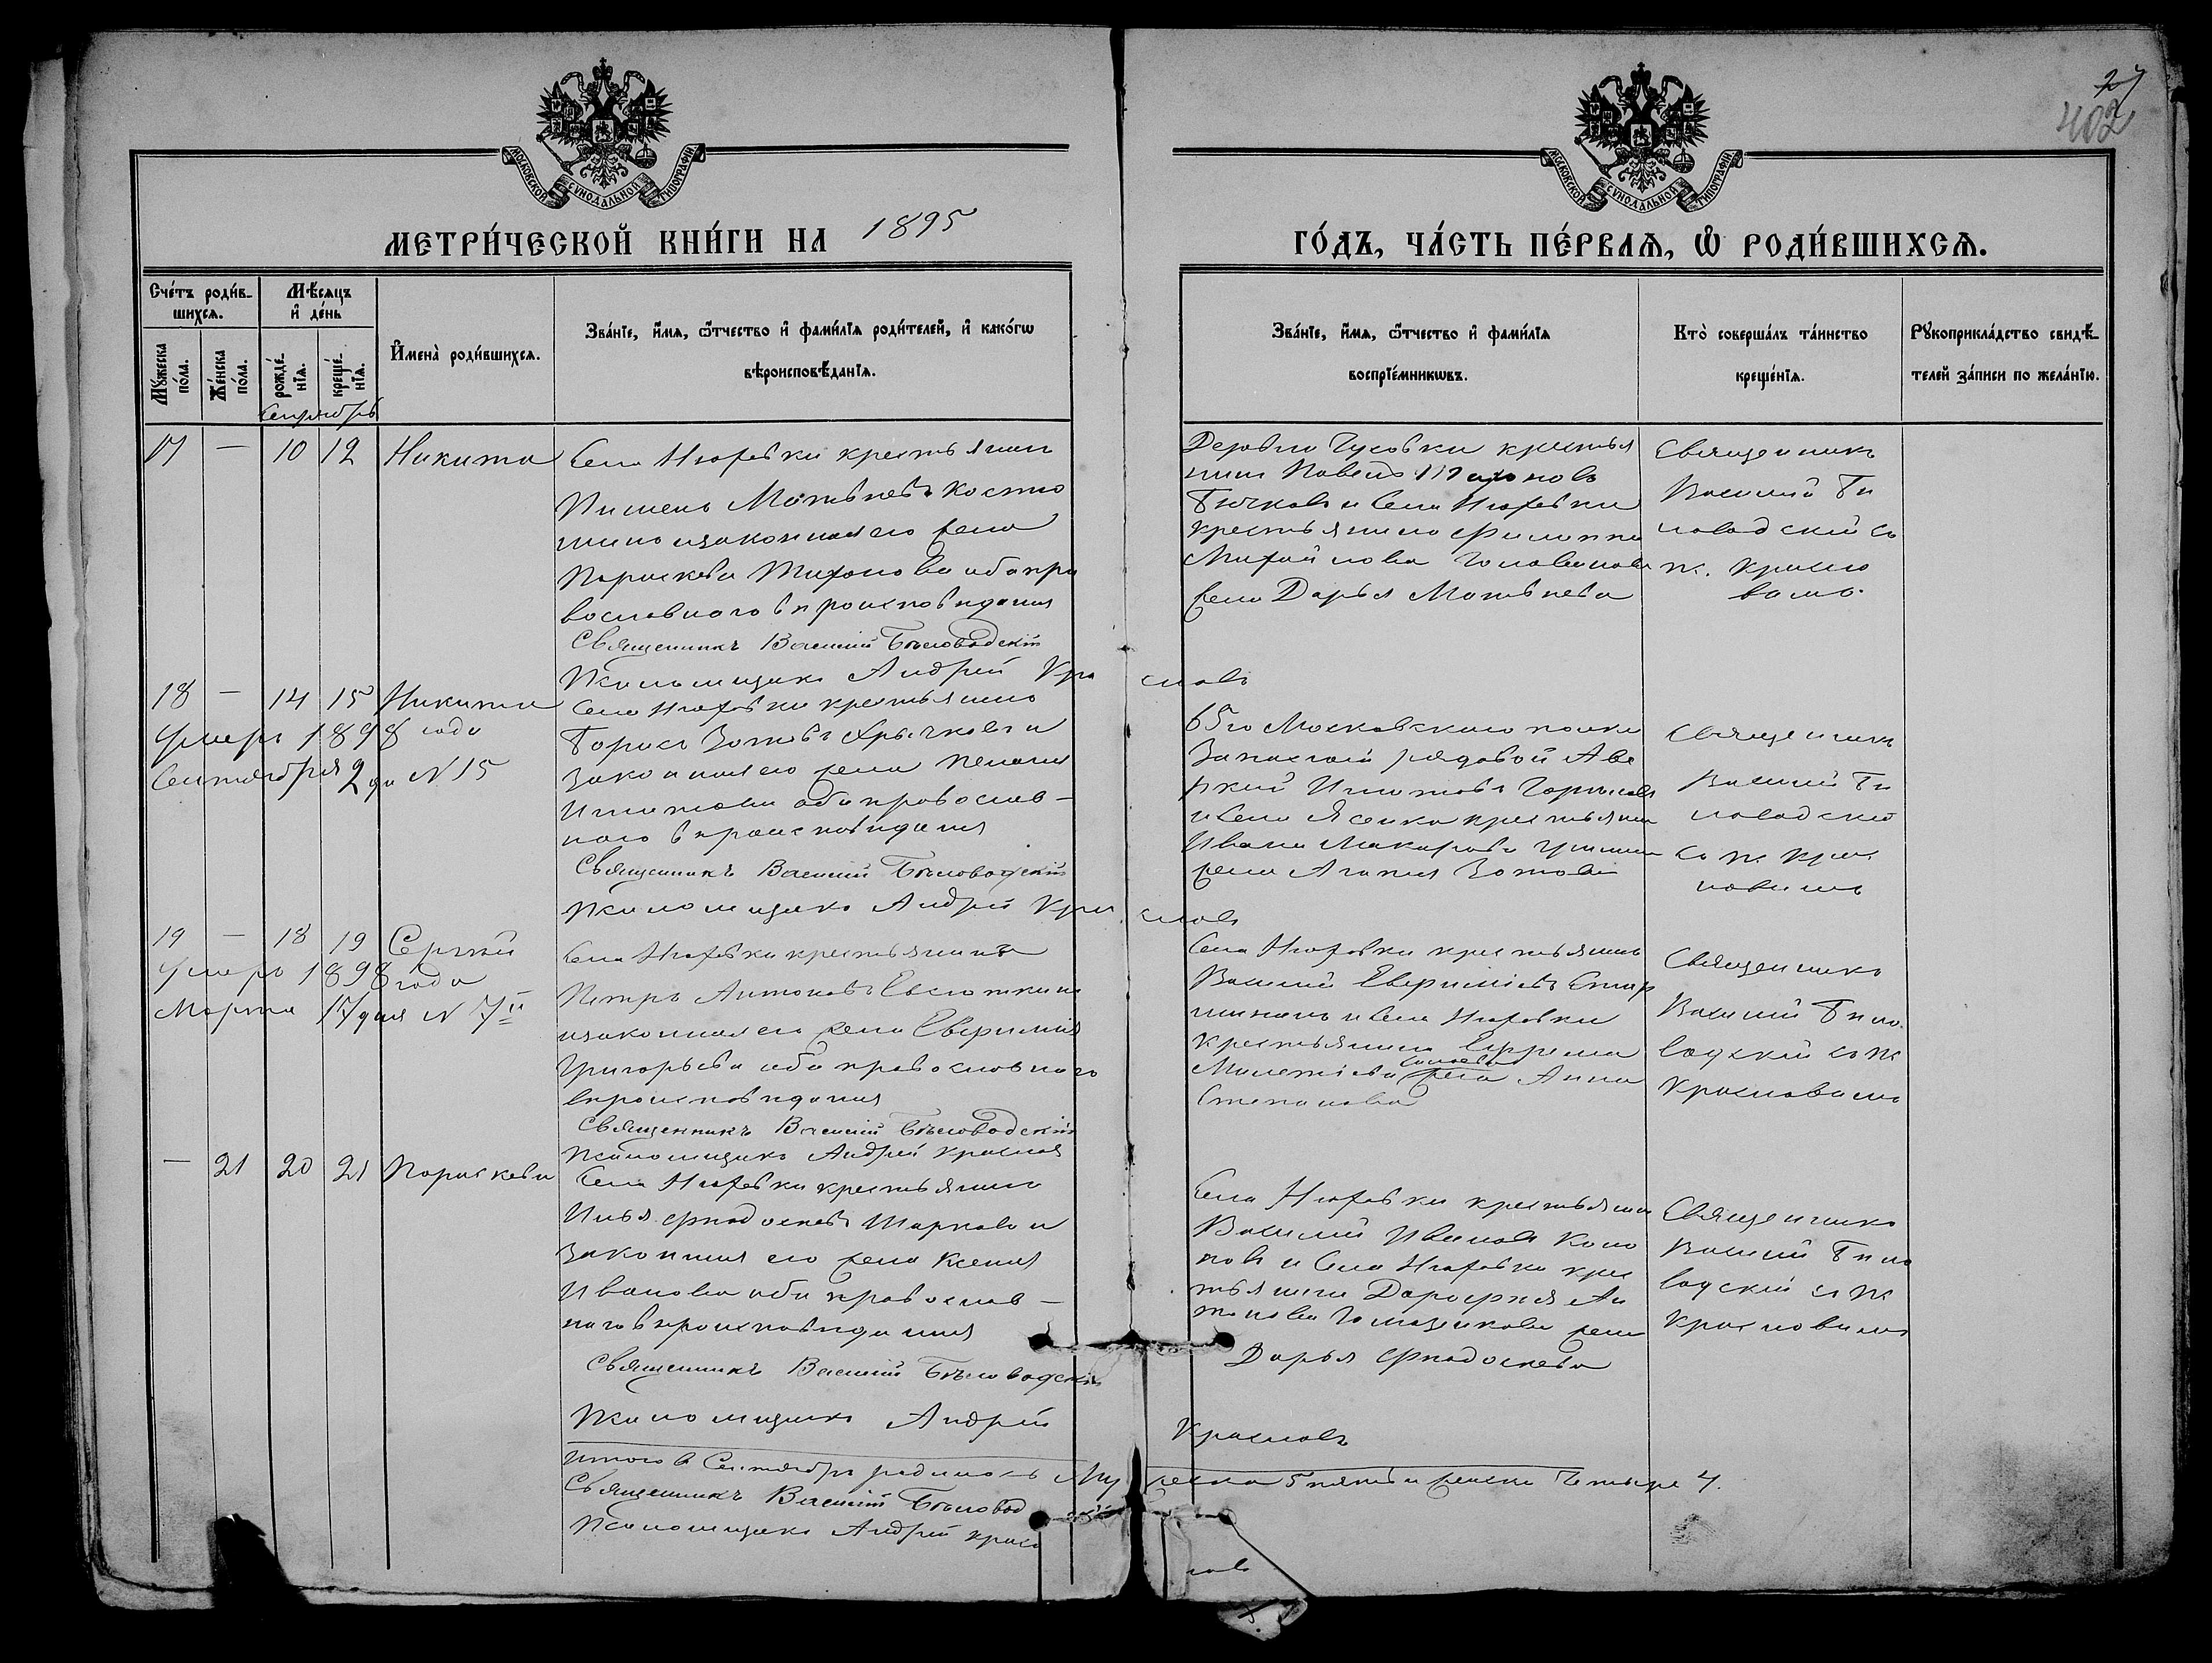 27
402
МОСКОВСКОЙ СѴНОДАЛЬНОЙ ТИПОГРАФІИ
МОСКОВСКОЙ СѴНОДАЛЬНОЙ ТИПОГРАФІИ
МЕТРИ́ЧЕСКОЙ КНИ́ГИ НА 1895
ГО́ДЪ, ЧА́СТЬ ПЕ́РВАѦ, Ѽ РОДИ́ВШИХСѦ.
Сче́тъ роди́в-
шихсѧ.
Мꙋжеска по́ла.
Же́нска по́ла.
Мѣ́сѧцъ и҆ де́нь
рожде́-нїѧ.
креще́-нїѧ.
Сентябрь
И҆мена̀ роди́вшихсѧ.
Зва́нїе, и҆́мѧ, ѻ҆́тчество и҆ фами́лїѧ роди́телей, и҆ како́гѡ
вѣроисповѣ́данїѧ.
Зва́нїе, и҆́мѧ, ѻ҆́тчество и҆ фами́лїѧ
воспрїе́мникѡвъ.
Кто̀ соверша́лъ та́инство
креще́нїѧ.
Рꙋкоприкла́дство свидѣ́-
телей за́писи по жела́нїю.
17 — 10 12 Никита
Села Нюховки крестьянин
Пимен Матвѣевъ Костю
шинъ изаконная его жена
Параскева Тихонова оба пра
вославного вѣроисповѣдания
Священникъ Василій Бѣловодскій
Псаломщикъ Андрей Краснов
Деревни Гусовки крестья
нин Павелъ Тихоновъ
Бычковъ и Села Нюховки
крестьянина Филиппа
Михайлова Головинова
жена Дарья Матвѣева
Священникъ
Василий Бѣ
ловодский съ
п. Красно
вымъ.
18 — 14 15 Никита
Умеръ 1898 года
Сентября 2 дн N 15
Села Нюховки крестьянинъ
Борисъ Зотовъ и
законная его жена Пелагия
Игнатова оба православ-
ного вѣроисповѣдания
Священникъ Василій Бѣловодскій
Псаломщикъ Андрей Краснов
65го Московского полка
Запасной рядовой Аве
ркий Игнатовъ
и Села крестьянина
Ивана Макарова
жена Агапия Зотова
Священникъ
Василий Бѣ
ловодский
съ п. Крас
новымъ
19 — 18 19 Сергѣй
Умеръ 1898 года
Марта 17 дня N 7й
Села Нюховки крестьянинъ
Петръ Антоновъ Евсюткинъ
изаконная его жена Евфимия
Григорьева оба православного
вѣроисповѣдания
Священникъ Василій Бѣловодскій
Псаломщикъ Андрей Краснов
Села Нюховки крестьянинъ
Василий Евфимиевъ
и Села Нюховки
крестьянина Ефрема
Милетиева жена Анна
Степанова
Священникъ
Василий Бѣло
водский съ п
Красновымъ
— 21 20 21 Параскева
Села Нюховки крестьянинъ
Илья Феодосиевъ Шарков и
законная его жена Ксения
Иванова оба православ-
ного вѣроисповѣдания
Священникъ Василій Бѣловодскій
Псаломщикъ Андрей Красновъ
Села Нюховки крестьянин
Василий Ивановъ Коно
нов и Села Нюховки крес
тьянина Дорофея Ан
тонова жена
Дарья Феодосиева
Священникъ
Василий Бѣло
водский съ п
Красновымъ
Итого в Сентябрѣ родилось Мужеска 5 пять и женска Четыре 4.
Священникъ Василій Бѣловод
Псаломщикъ Андрей Краснов